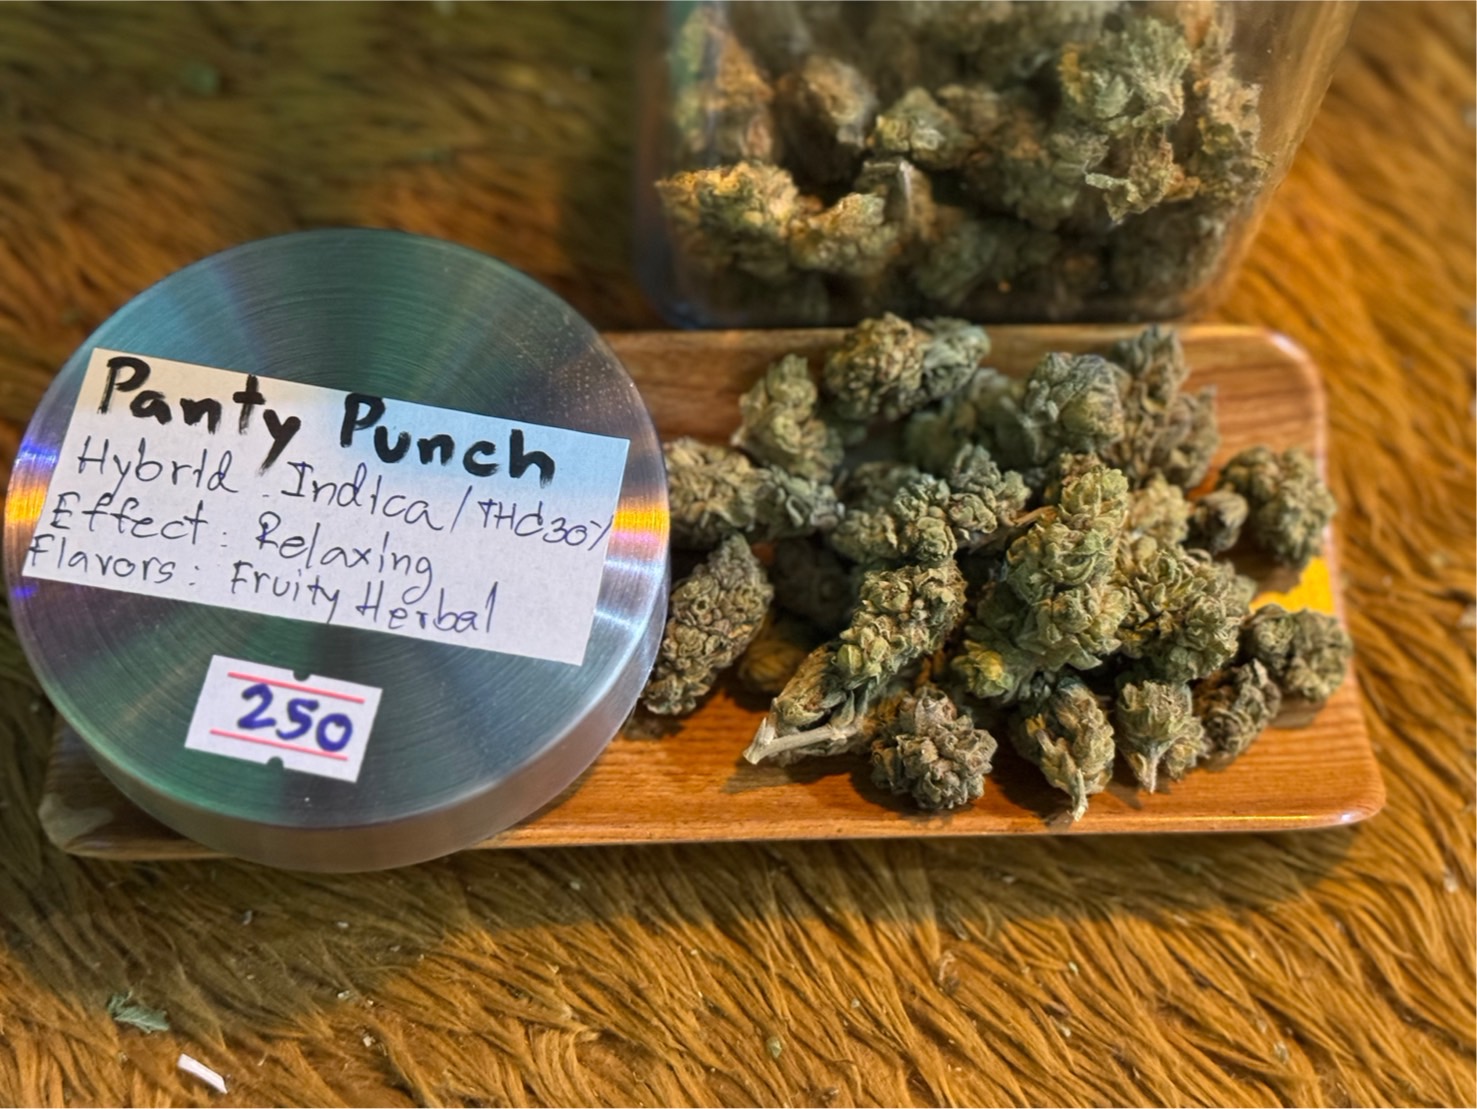 Panty Punch
Hybrid . Indica / THC 30%
Effect : Relaxing
Flavors : Fruity Herbal
250